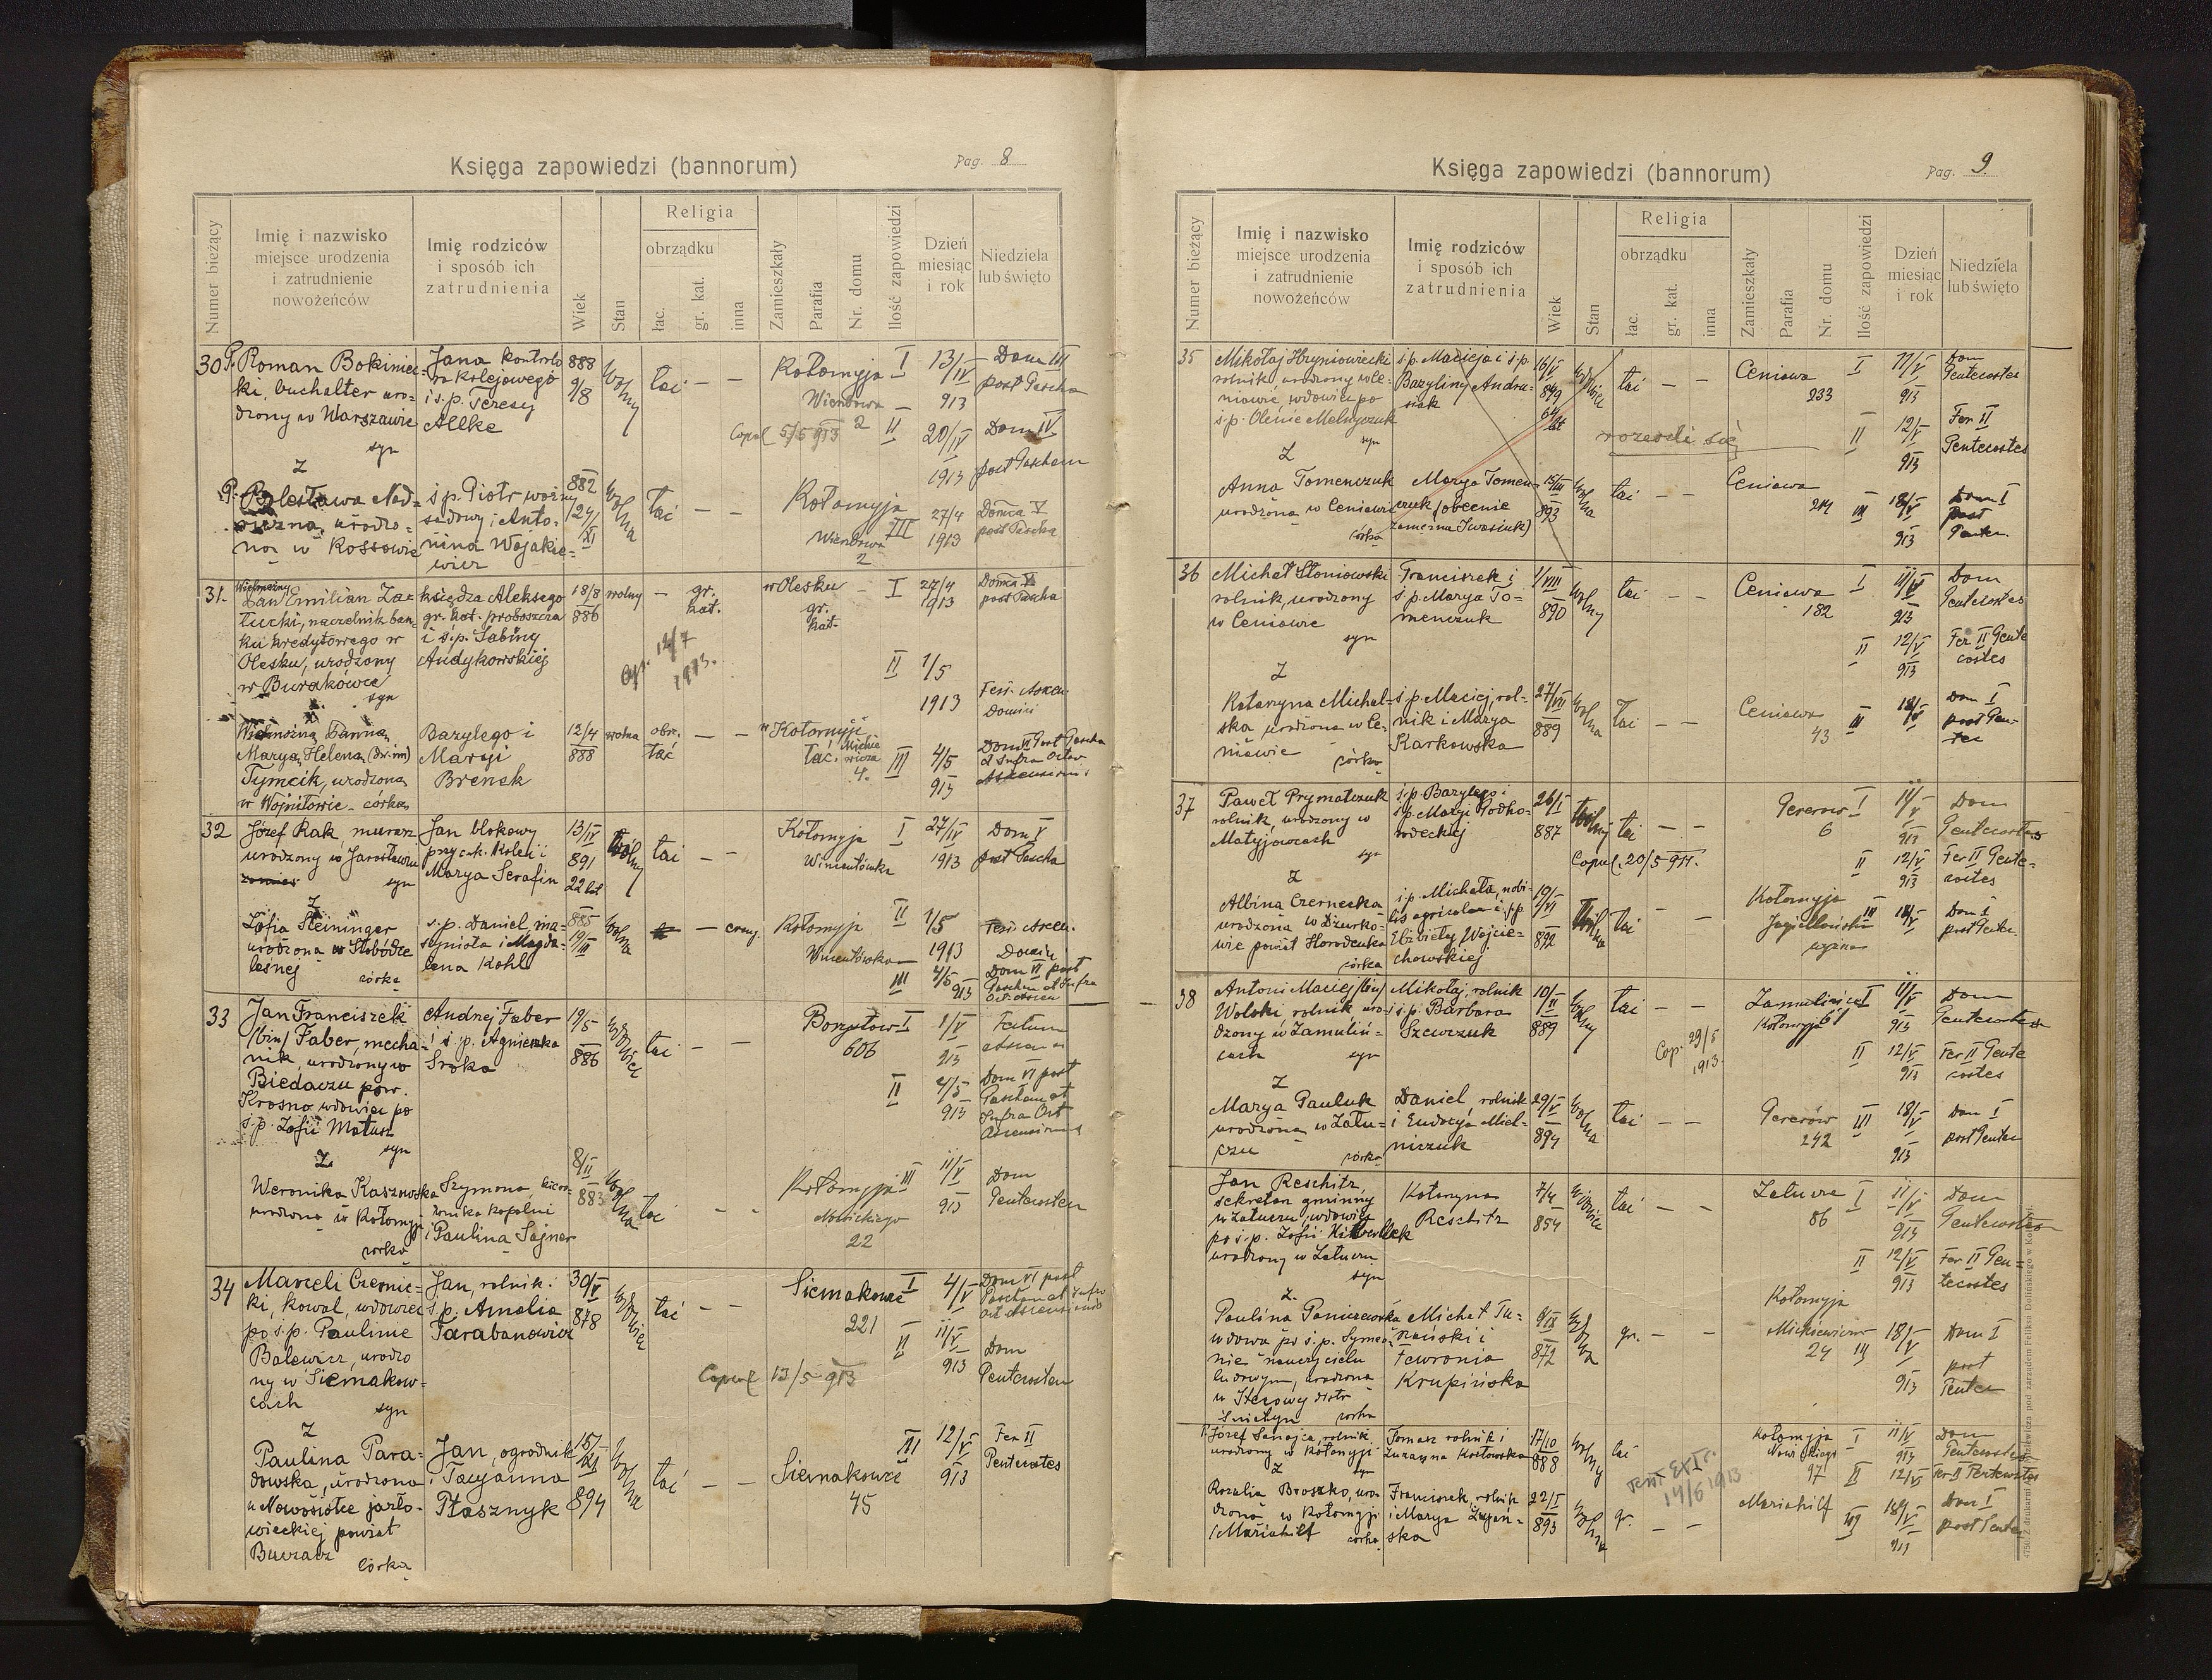 Księga zapowiedzi (bannorum)
Pag. 8
Numer bieżący
Imię i nazwisko
miejsce urodzenia
i zatrudnienie
nowożeńców
Imię rodziców
i sposób ich
zatrudnienia
Wiek
Stan
Religia
obrządku
łac.
gr. kat.
inna
Zamieszkały
Parafia
Nr. domu
Ilość zapowiedzi
Dzień
miesiąc
i rok
Niedziela
lub święto
30
P. Roman Bokiniec-
ki, buchalter uro-
dzony w Warszawie
syn
Jana kontrolo
ra kolejowego
i ś.p. Teresy
Allke
888
9/8
wolny
łać
— —
Kołomyja
Wieniowa
2
Copul 5/5 913
I
13/IV
913
Dom III
post Pascha
II
20/IV
1913
Dom IV
post Pascham
Z
P. Bolesława Nad-
urodzo-
na w Kossowie
ś.p. Piotr woźny
sądowy i Anto-
nina Wojakie-
wicz
882
24/XI
wolna
łać
— —
Kołomyja
2
III
27/4
1913
Domca V
post Pascha
31
Wielmożny
Pan Emilian Za-
łucki, naczelnik ban-
ku kredytowego w
Olesku, urodzony
w Burakówce
syn
księdza Aleksego
gr. kat. proboszcza
i ś.p. Sabiny
Andykowskiej
18/8
886
wolny
—
gr.
kat.
w Olesku
gr.
kat.
Cop. 12/7
1913.
I
27/4
1913
Domca V
post Pascha
II
1/5
1913
Fest. Ascen.
Domini
Z
Wielmożna Panna
Marya Helena (dw. im)
Tymcik, urodzona
w Wojniłowie - córka
Bazylego i
Maryi
Brenek
12/4
888
wolna
obr.
łać
— —
w Kołomyji
łać. Mickie
wicza
4.
III
4/5
913
Dom VI Post Pascha
et Infra Octav
Ascensionis
32
Józef Rak, murarz
urodzony w Jarosławiu
syn
Jan blokowy
przy c.k. kolei i
Marya Serafin
13/IV
891
22 lat
wolny
łać
— —
Kołomyja
Wincentówka
I
27/IV
1913
Dom V
post Pascha
Z
Zofia Steininger
urodzona w Słobódce
leśnej
córka
ś.p. Daniel, ma-
szynista i Magda-
lena Kohl
885
19/III
wolna
—
ewang.
Kołomyja
Wincentówka
II
1/5
1913
Fest. Ascen.
Domini
III
4/5
913
Dom VI post
Pascham et Infra
Oct. Ascen
33
Jan Franciszek
(bin) Faber, mecha-
nik, urodzony w
Biedaczu pow.
Krosno wdowiec po
ś.p. Zofii Matusz
syn
Andrzej Faber
i ś.p. Agnieszka
Sroka
19/5
886
wdowiec
łać
— —
Borysław
606
I
1/V
913
Festum
Ascen
II
4/5
913
Dom VI post
Pascham et
Infra Oct
Ascensionis
Z
Weronika Kaszowska
urodzona w Kołomyji
córka
Szymona, kiero-
wnika kopalni
i Paulina Sajner
8/II
883
wolna
łać
— —
Kołomyja
22
III
11/V
913
Dom
Pentecosten
34
Marceli Czernic-
ki, kowal, wdowiec
po ś.p. Paulinie
Balewicz, urodzo
ny w Siemakow-
cach
syn
Jan, rolnik i
ś.p. Amalia
Tarabanowicz
30/V
878
wdowiec
łać
— —
Siemakowce
221
Copul 13/5 913
I
4/V
Dom VI post
Pascham et infra
oct Ascensionis
II
11/V
913
Dom
Pentecosten
Z
Paulina Para-
dowska, urodzona
w Nowosiółce jazło-
wieckiej powiat
Buczacz
córka
Jan, ogrodnik
i Tacyanna
Ptasznyk
15/XI
894
wolna
łać
— —
Siemakowce
45
III
12/V
913
Fer II
Pentecostes
Księga zapowiedzi (bannorum)
Pag. 9
Numer bieżący
Imię i nazwisko
miejsce urodzenia
i zatrudnienie
nowożeńców
Imię rodziców
i sposób ich
zatrudnienia
Wiek
Stan
Religia
obrządku
łac.
gr. kat.
inna
Zamieszkały
Parafia
Nr. domu
Ilość zapowiedzi
Dzień
miesiąc
i rok
Niedziela
lub święto
35
Mikołaj Hryniowiecki
rolnik, urodzony w Ce-
niawie, wdowiec po
ś.p. Olenie Melnyczuk
syn
ś.p. Macieja i ś.p.
Bazyliny Andru-
siak
16/V
849
64 lat
wdowiec
łać
— —
Ceniawa
233
rozeszli się
I
11/V
913
Dom
Pentecostes
II
12/V
913
Fer II
Pentecostes
Z
Anna Tomenczuk
urodzona w Ceniawie
córka
Marya Tomen-
czuk (obecnie
zamężna Iwasiuk)
15/III
893
wolna
łać
— —
Ceniawa
214
III
18/V
913
Dom I
post
Pentec.
36
Michał Słoniowski
rolnik, urodzony
w Ceniawie
syn
Franciszek i
ś.p. Marya To-
menczuk
1/VIII
890
wolny
łać
— —
Ceniawa
182
I
11/V
913
Dom
Pentecostes
II
12/V
913
Fer II Pente
costes
Z
Katarzyna Michal-
ska urodzona w Ce-
niawie
córka
ś.p. Maciej, rol-
nik i Marya
Karkowska
27/VII
889
wolna
łać
— —
Ceniawa
43
III
18/V
Dom I
post Pen-
tec
37
Paweł Prymatczuk
rolnik urodzony w
Matyjowcach
syn
ś.p. Bazylego i
ś.p. Maryi Podho-
rodeckiej
26/I
887
wolny
łać
— —
Pererów
6
Copul. 20/5 911.
I
11/V
913
Dom
Pentecostes
II
12/V
913
Fer II Pente-
costes
Z
Albina Czernecka
urodzona w Dżurko-
wie powiat Horodenka
córka
ś.p. Michała, nobi-
lis agricolae i ś.p.
Elżbiety Wojcie-
chowskiej
19/VI
892
wolna
łać
— —
Kołomyja
Jagiellońska
III
18/V
Dom I
post Pentec.
38
Antoni Maciej (bin)
Wolski rolnik uro-
dzony w Zamuliń-
cach
syn
Mikołaj, rolnik
i ś.p. Barbara
Szewczuk
10/II
889
wolny
łać
— —
Zamulińce
Kołomyja 61
Cop. 29/5
1913
I
11/V
913
Dom
Pentecostes
II
12/V
913
Fer II Pente
costes
Z
Marya Pauluk
urodzona w Zału-
czu
córka
Daniel, rolnik
i Eudocya Miel-
niczuk
29/V
894
wolna
łać
— —
Pererów
242
III
18/V
913
Dom I
post Pentec
Jan Reschitz,
sekretarz gminny
w Załuczu, wdowiec
po ś.p. Zofii
urodzony w Załuczu
syn
Katarzyna
Reschitz
7/4
854
wdowiec
łać
— —
Załucze
86
I
11/V
913
Dom
Pentecostes
II
12/V
913
Fer II Pen-
tecostes
Z
Paulina Paniczewska
wdowa po ś.p. Symeo-
nie nauczycielu
ludowym, urodzona
w
Śniatyn córka
Michał Tu-
rzański i
Fewronia
Krupińska
9/IX
872
wdowa
gr. — —
Kołomyja
Mickiewicza
24
III
18/V
913
Dom I
post
Pentec
P. Józef Sanojca, rolnik
urodzony w Kołomyji
syn
Tomasz rolnik i
Zuzanna Kozłowska
17/10
888
wolny
łać
Kołomyja
97
I
11/V
913
Dom
Pentecostes
II
12/V
Fer II Pentecostes
Z
Rozalia Broszko, uro-
dzona w Kołomyji
(Mariahilf córka
Franciszek, rolnik
i Marya
ska
22/I
893
wolna
gr.
— —
Test. Ext.
14/6 1913
Mariahilf
III
18/V
913
Dom I
post Pentec